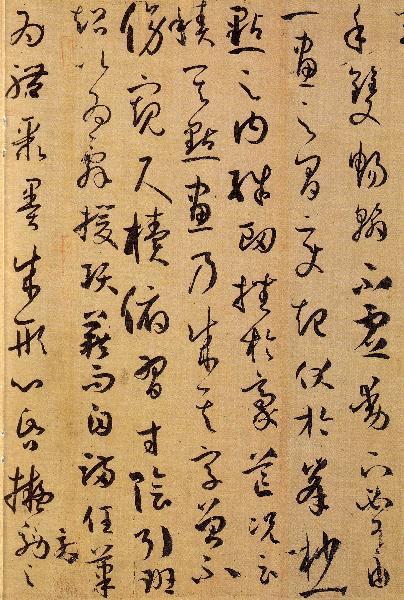 手雙暢翰不虛動下必有由
一畫之間變起伏於峯杪一
點之內殊衄挫於豪芒況云
積其點畫乃成其字曾不
傍窺尺櫝俯習寸陰引班
超以為辭援項籍而自滿任筆
為體聚墨成形心昏擬効之方